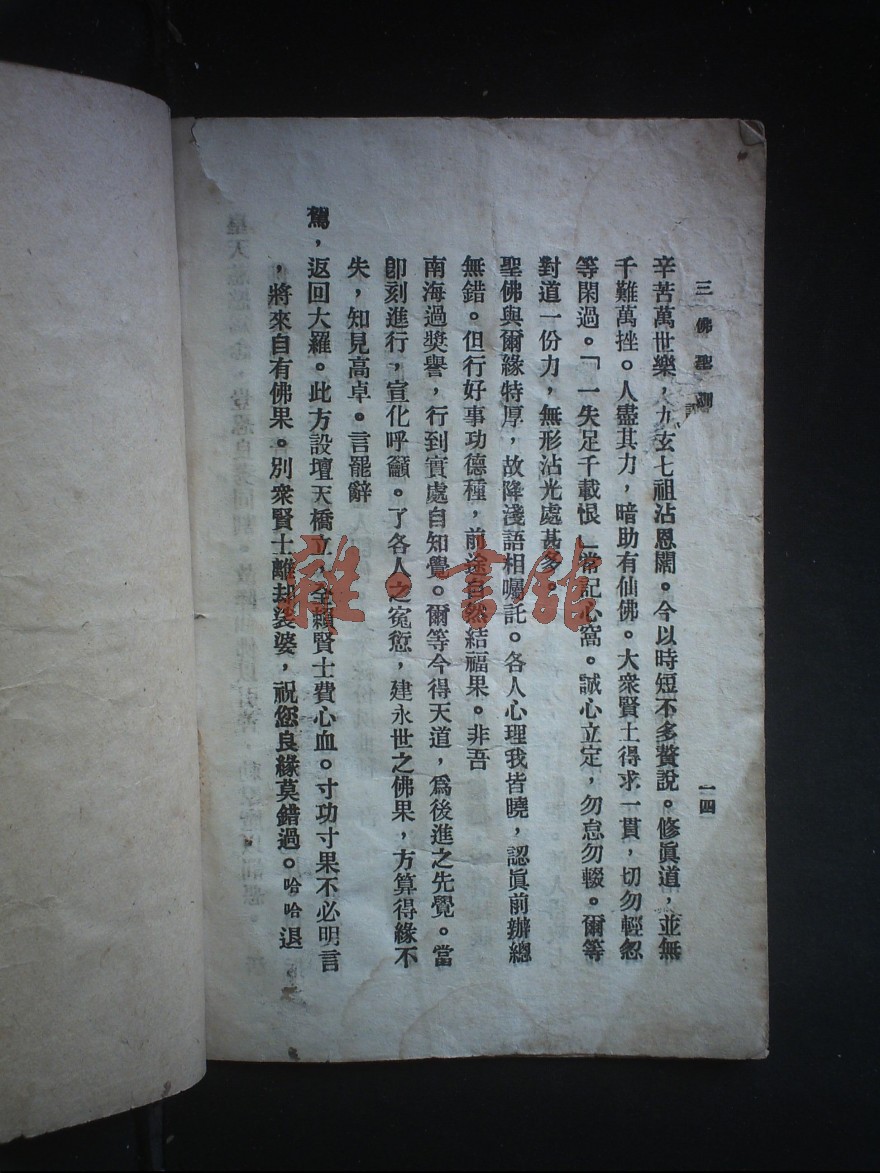 三佛聖訓
一四
辛苦萬世樂，九玄七祖沾恩闊。今以時短不多贅說。修眞道，並無
千難萬挫。人盡其力，暗助有仙佛。大衆賢士得求一貫，切勿輕忽
等閑過。「一失足千載恨」常記心窩。誠心立定，勿怠勿輟。爾等
對道一份力，無形沾光處甚多。
聖佛與爾緣特厚，故降淺語相囑託。各人心理我皆曉，認眞前辦總
無錯。但行好事功德種，前途自然結福果。非吾
南海過獎譽，行到實處自知覺。爾等今得天道，爲後進之先覺。當
卽刻進行，宣化呼籲。了各人之寃愆，建永世之佛果，方算得緣不
失，知見高卓。言罷辭
駕，返回大羅。此方設壇天橋立，全賴賢士費心血。寸功寸果不必明言
，將來自有佛果。別衆賢士離却娑婆，祝您良緣莫錯過。哈哈退
雜·書館